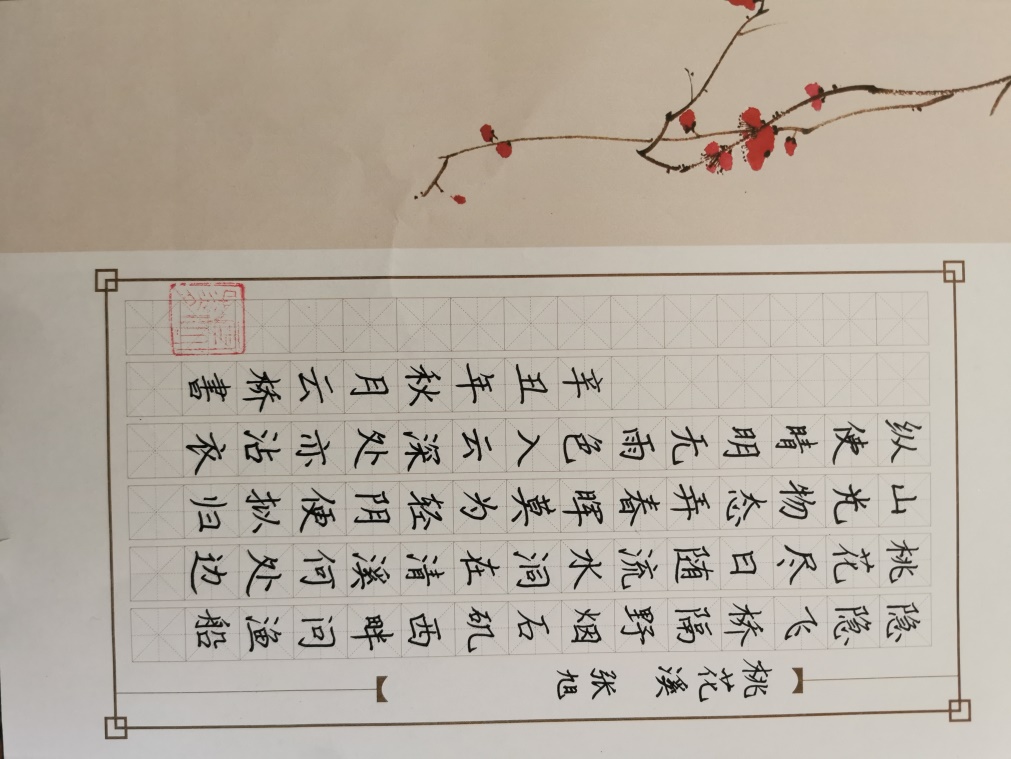 桃花溪
张旭
隐隐飞桥隔野烟石矶西畔问渔船
桃花尽日随流水洞在清溪何处边
山光物态弄春晖莫为轻阴便拟归
纵使晴明无雨色入云深处亦沾衣
辛丑年秋月云桥書